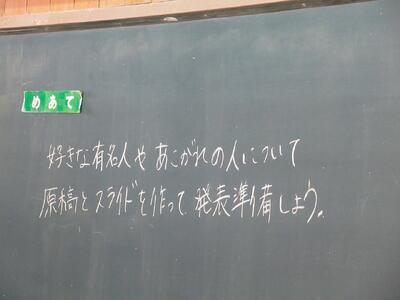 めあて
好きな有名人やあこがれの人について
原稿とスライドを作って、発表準備しよう。